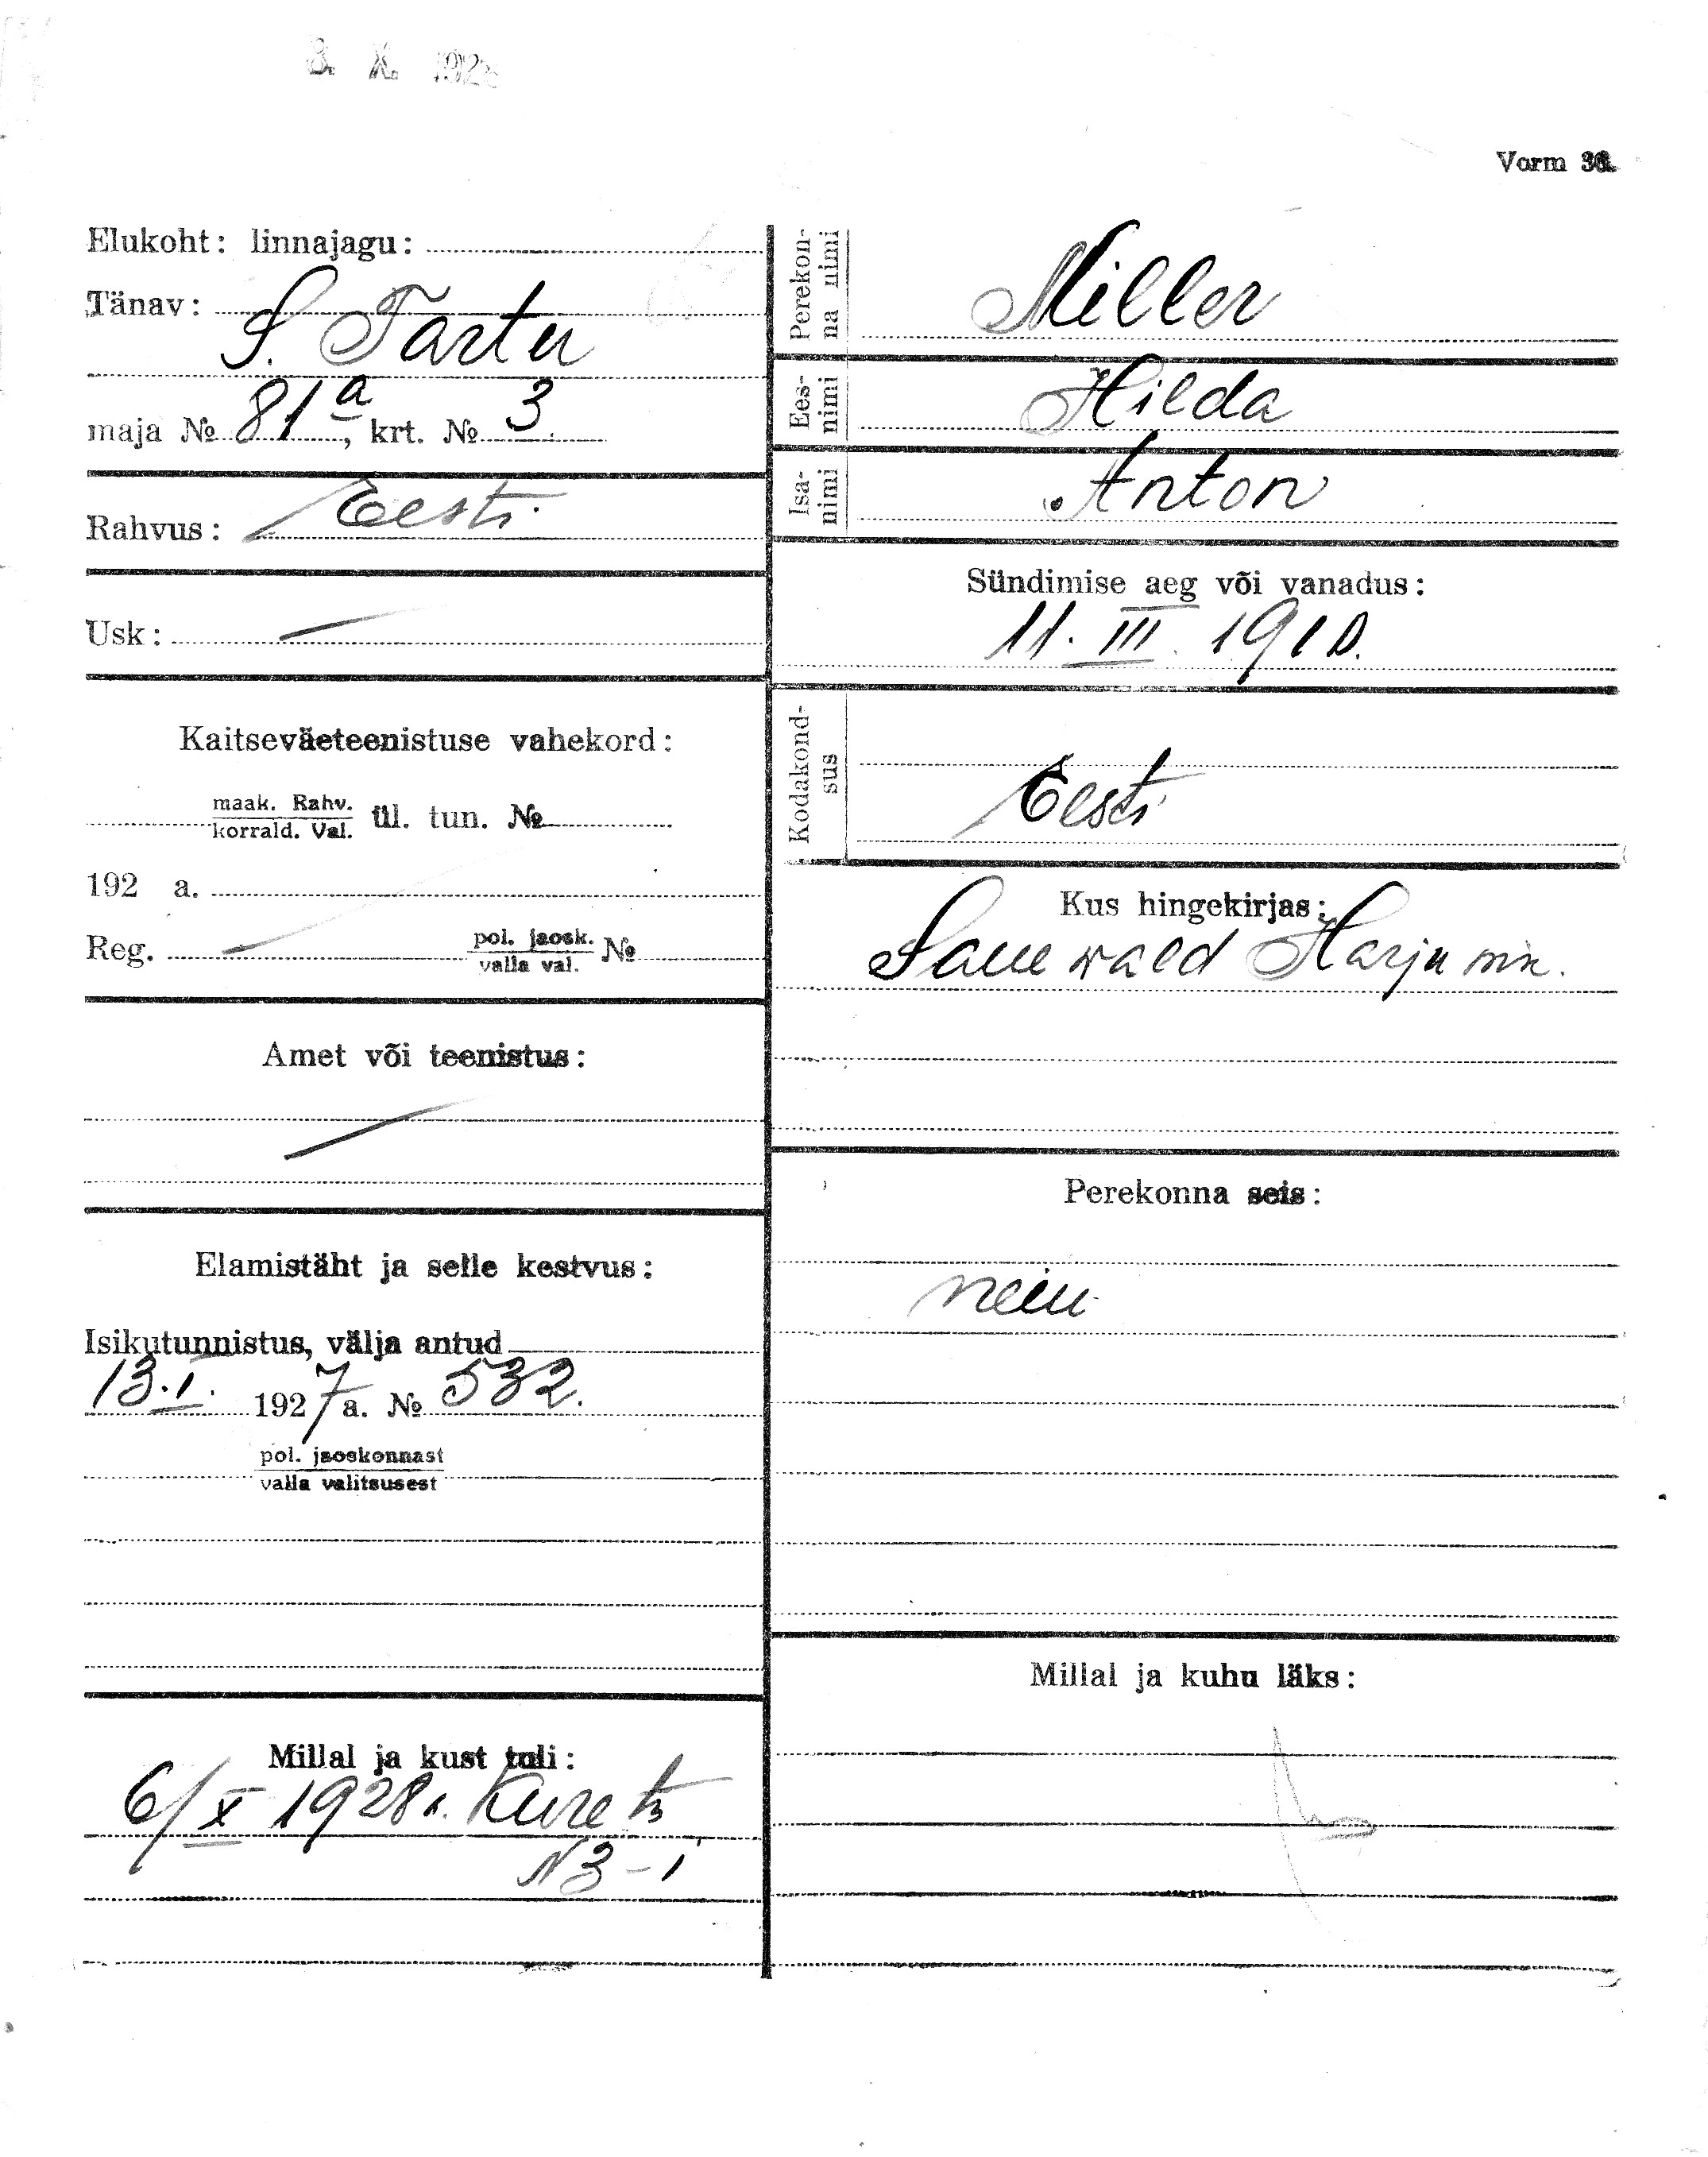 8. X. 1928
Vorm 36.
Elukoht: linnajagu:
Tänav:
S. Tartu
maja № 81a, krt. № 3.
Rahvus: Eesti
Usk: —
Kaitseväeteenistuse vahekord:
maak. Rahv.
korrald. Val. ül. tun. №
192 a.
Reg. — pol. jaosk.
valla val. №
Amet või teenistus:
—
Elamistäht ja selle kestvus:
Isikutunnistus, välja antud
13. I. 1927 a. № 532.
pol. jaoskonnast
valla valitsusest
Millal ja kust tuli:
6/X 1928 a. Kure tn
N 3-1
Perekon-
na nimi
Miller
Ees-
nimi
Hilda
Isa-
nimi
Anton
Sündimise aeg või vanadus:
11. III. 1910.
Kodakond-
sus
Eesti
Kus hingekirjas:
Saue wald Harju mk.
Perekonna seis:
neiu
Millal ja kuhu läks: